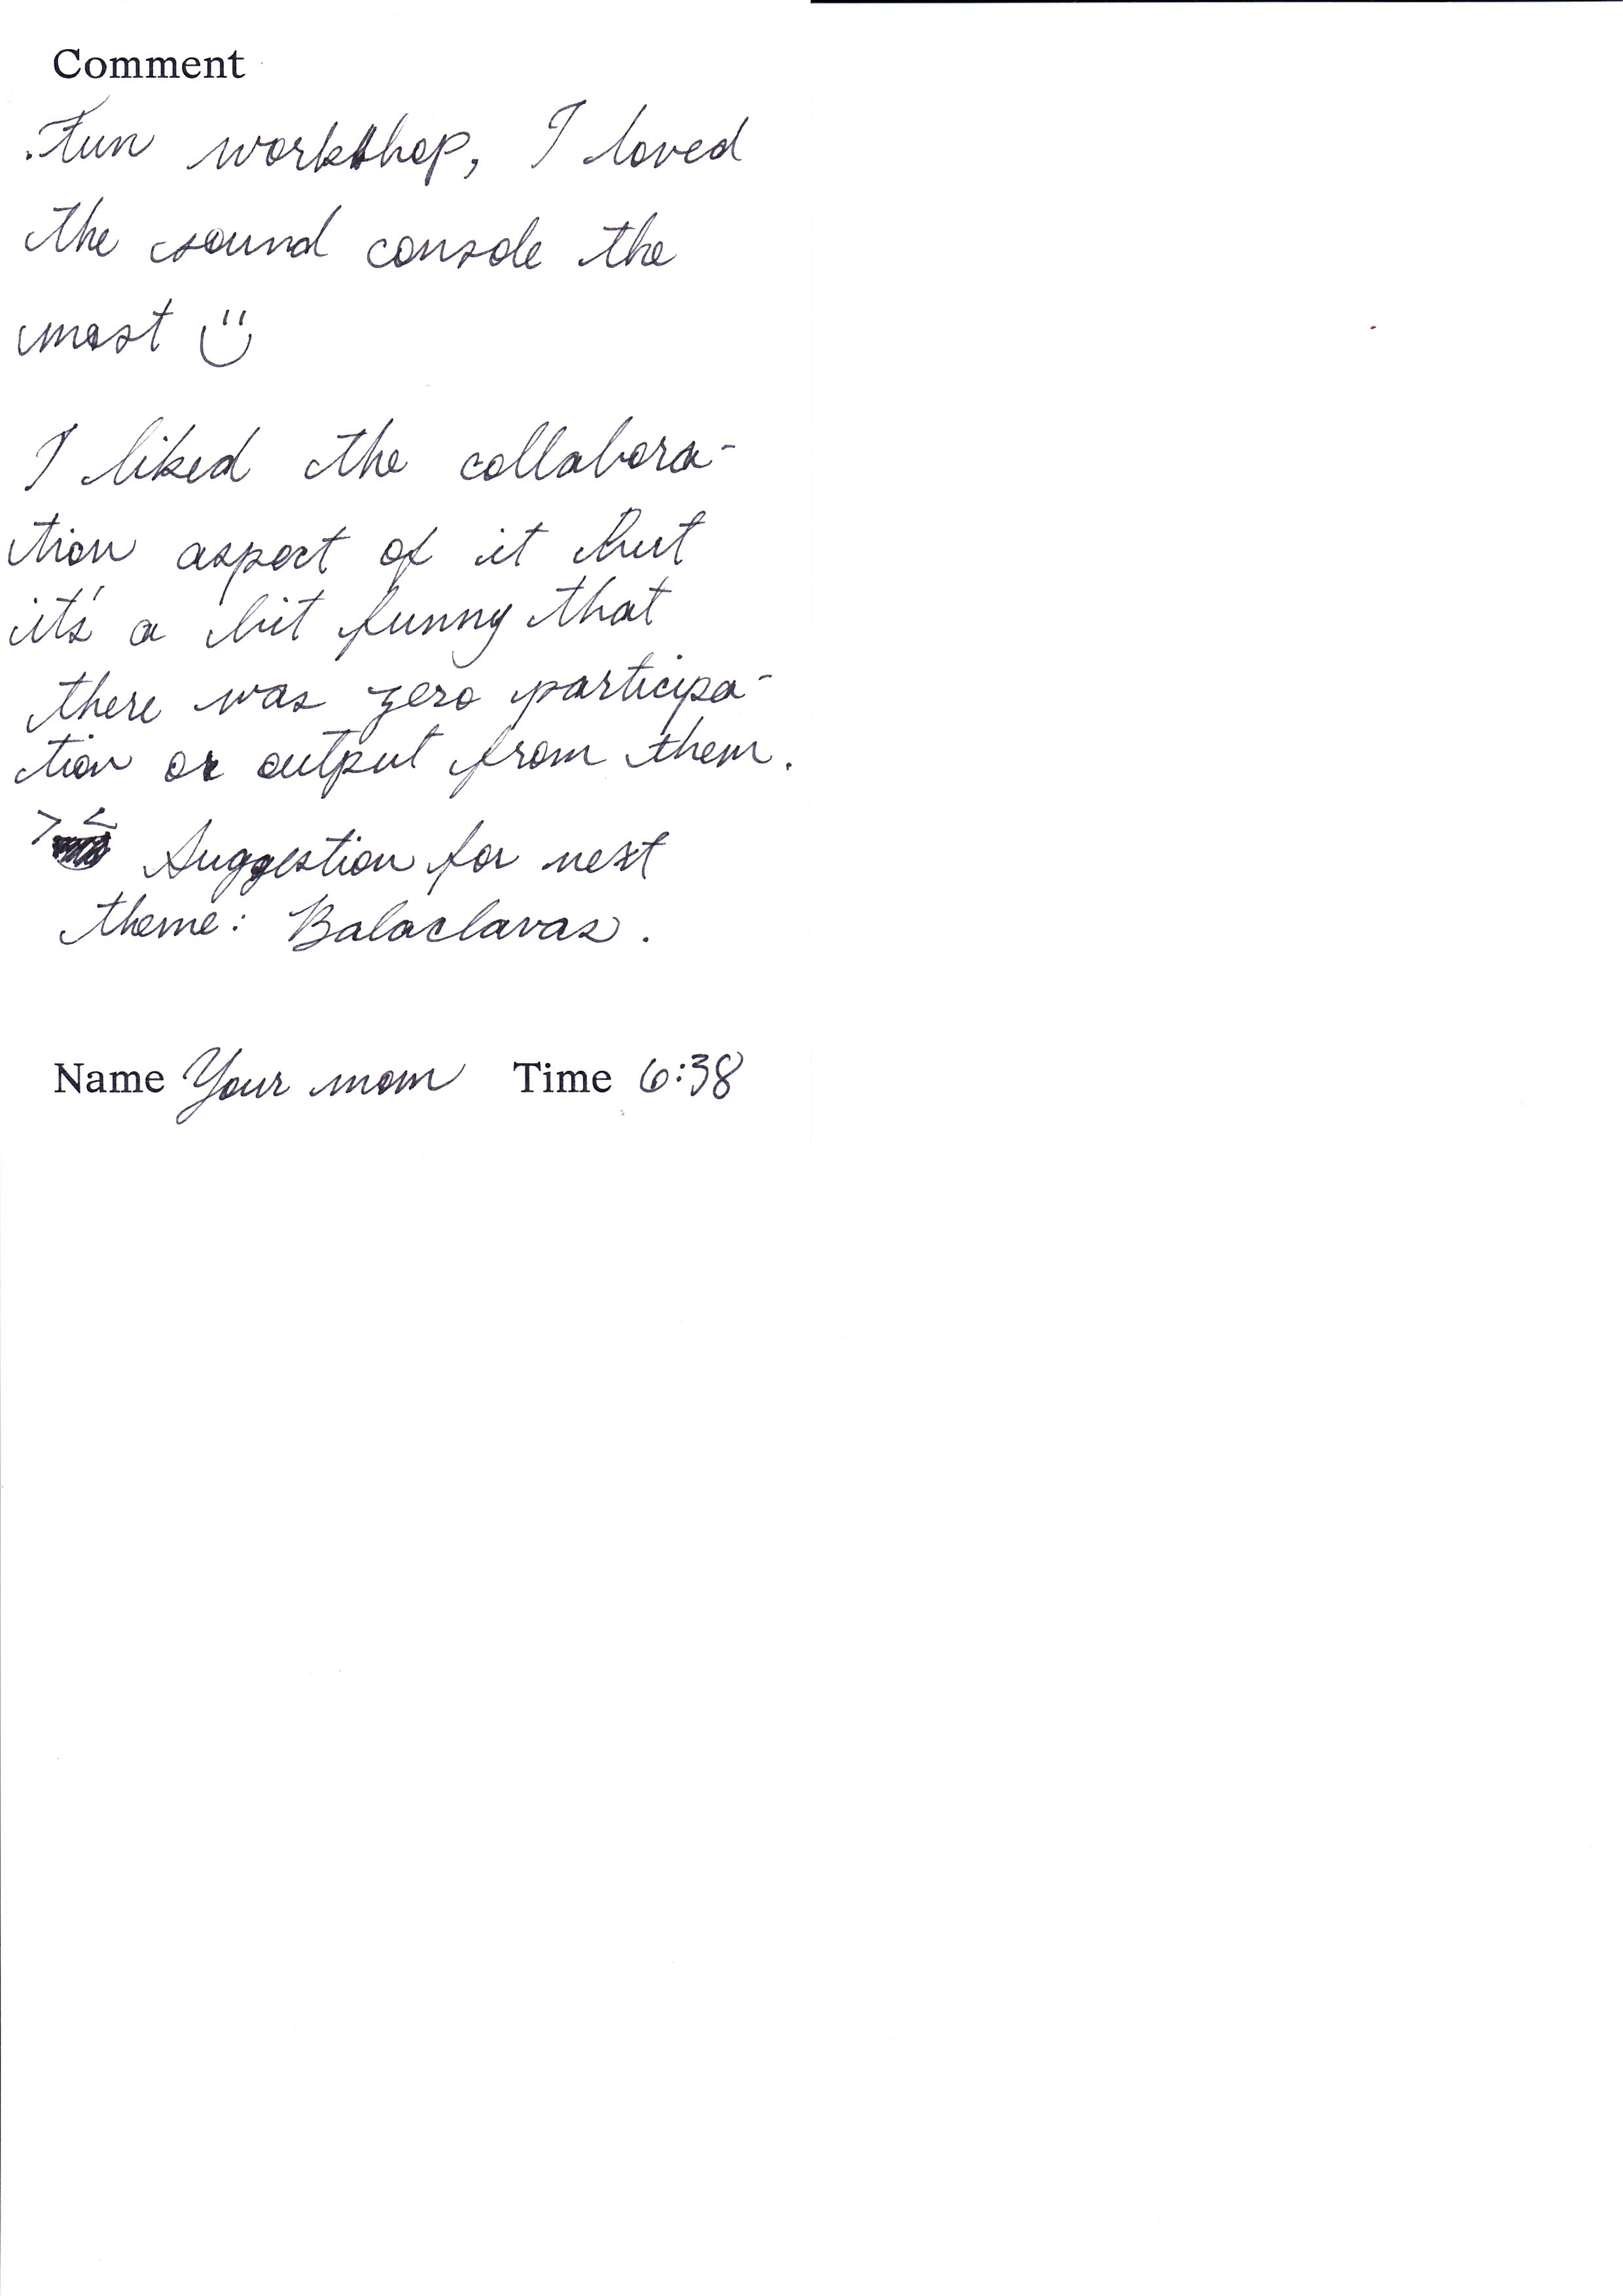 Comment
Fun workshop, I loved
the sound console the
most
I liked the collabora-
tion aspect of it but
it's a bit funny that
there was zero participa-
tion or output from them.
> <
Suggestion for next
theme: Balaclavas.
Name Your mom Time 6:38